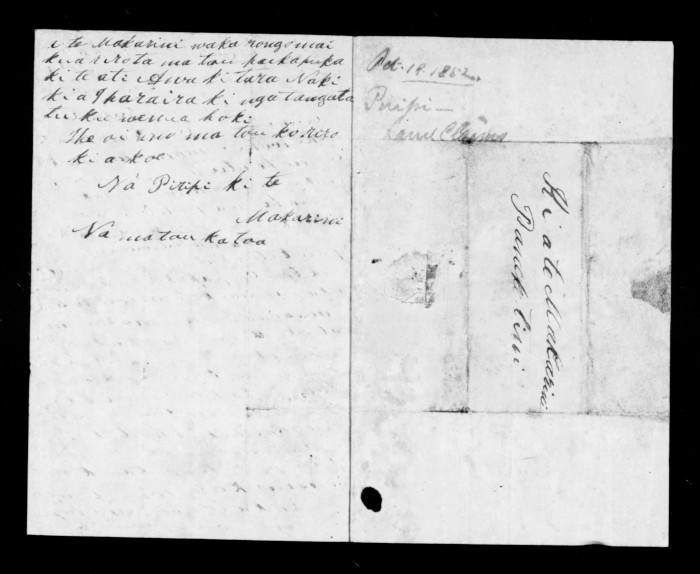 e te Makarini waka rongo mai
kua riro ta ma tou pukapuka
ki te ati Awa ki tara Naki
ki a Iharaira ki nga tangata
tu ku wenua hoki
Ihe oi ano ma tou korero
ki a koe
Na Piripi ki te
Makarini
Na matou katoa
Oct. 19. 1852
Piripi —
Land Claims
Ki a te Makarini